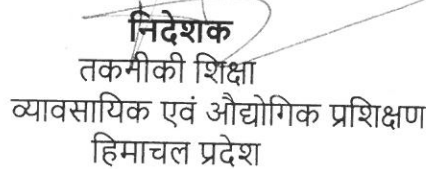 निदेशक
तकनीकी शिक्षा
व्यावसायिक एवं औद्योगिक प्रशिक्षण
हिमाचल प्रदेश